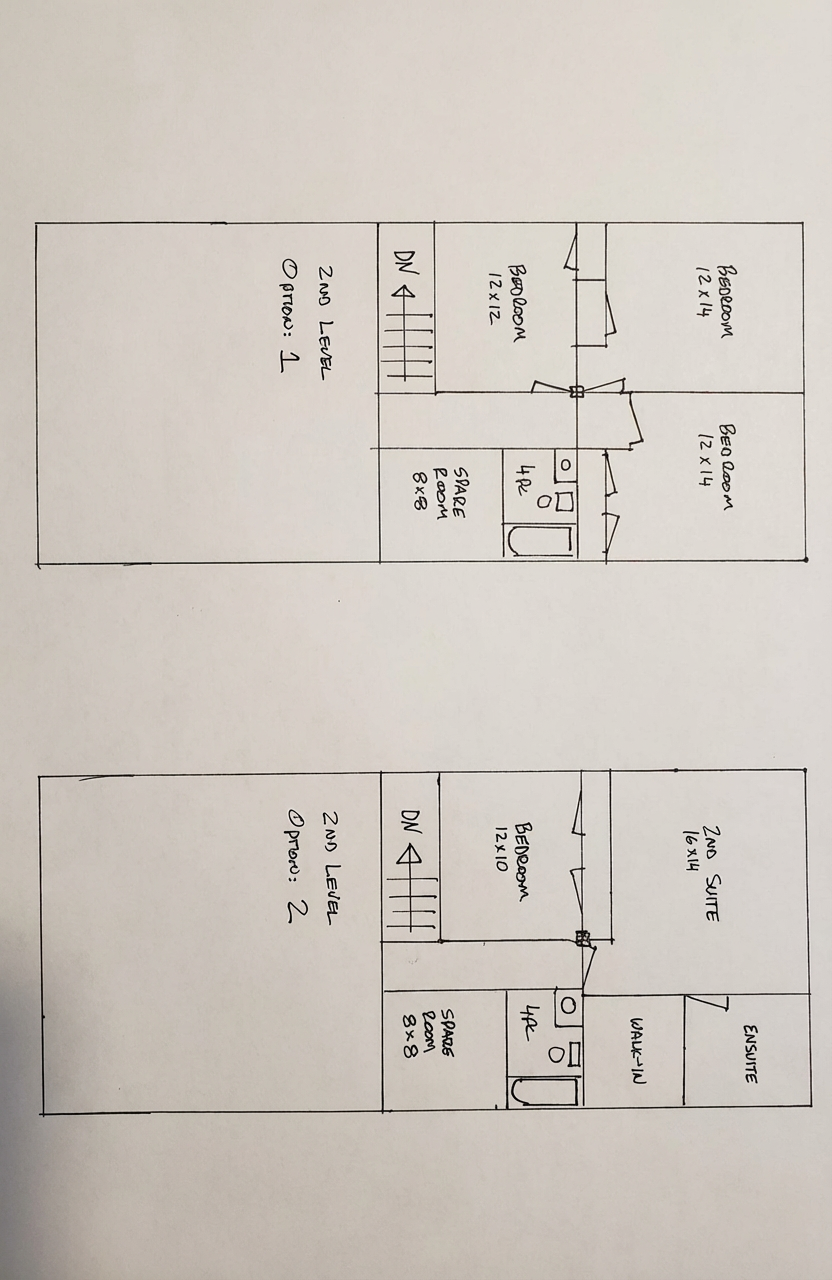 BEDROOM
12 x 14
BEDROOM
12 x 14
BEDROOM
12 x 12
4PC
SPARE
ROOM
8x8
DN
2ND LEVEL
OPTION: 1
2ND SUITE
16 x 14
ENSUITE
WALK-IN
BEDROOM
12 x 10
4PC
SPARE
ROOM
8x8
DN
2ND LEVEL
OPTION: 2